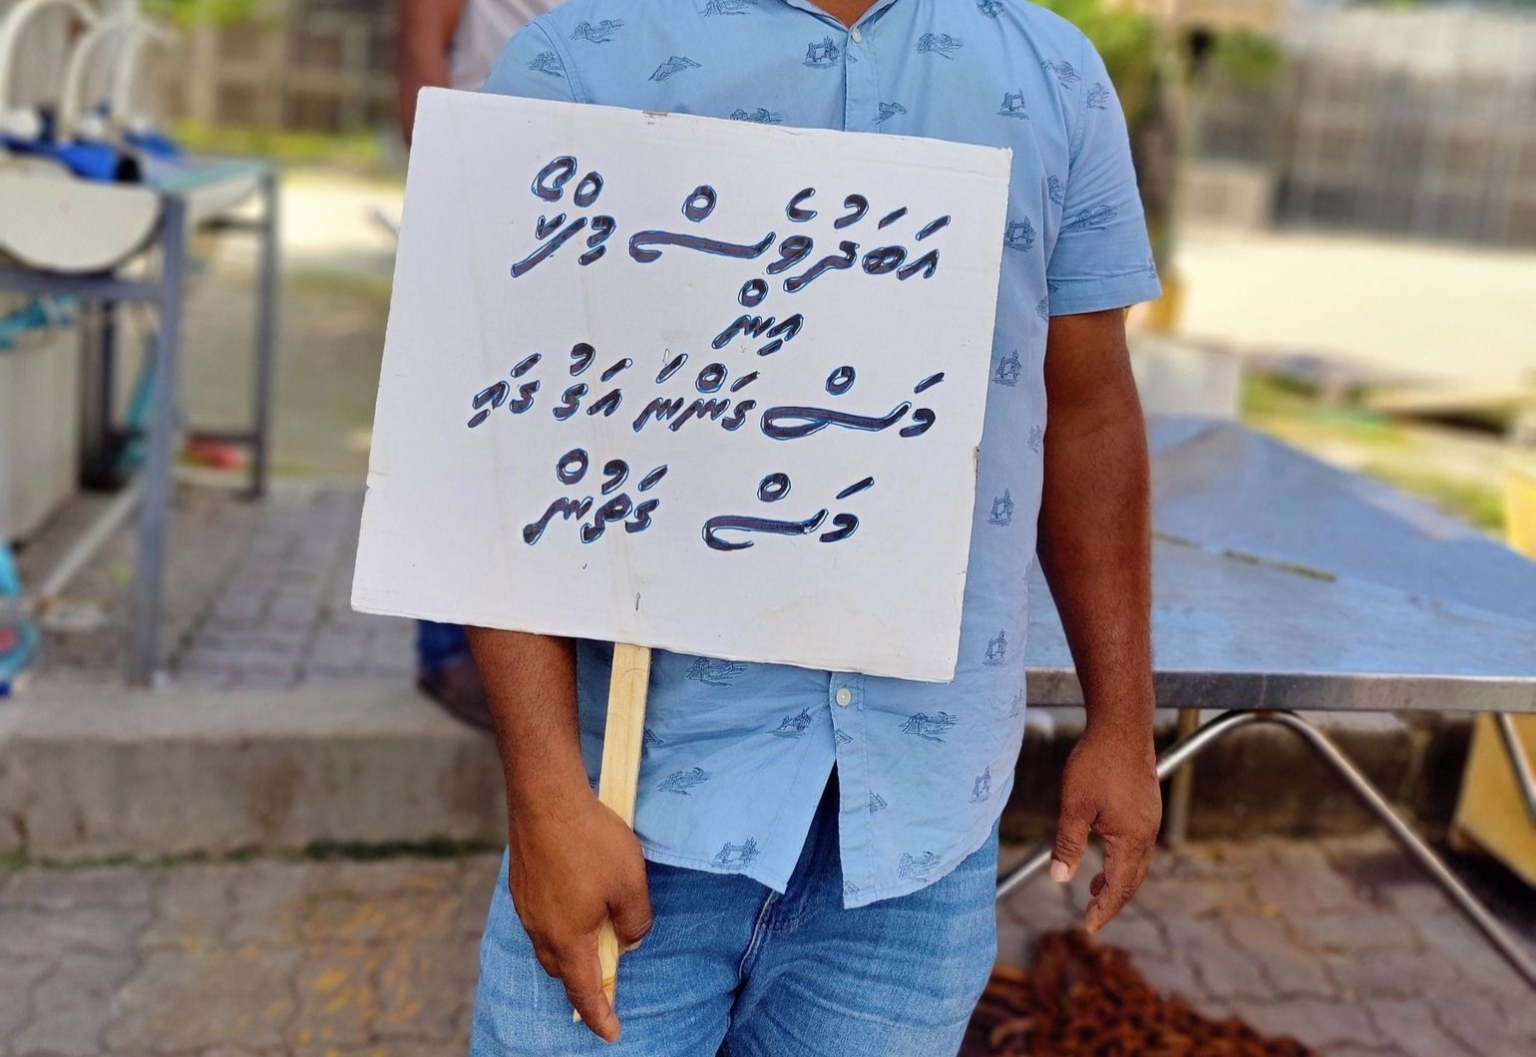 އަބަދުވެސް މިފްކޯ
އިން
މަސް ގަންނަ އަގު ގައި
މަސް ގަތުން